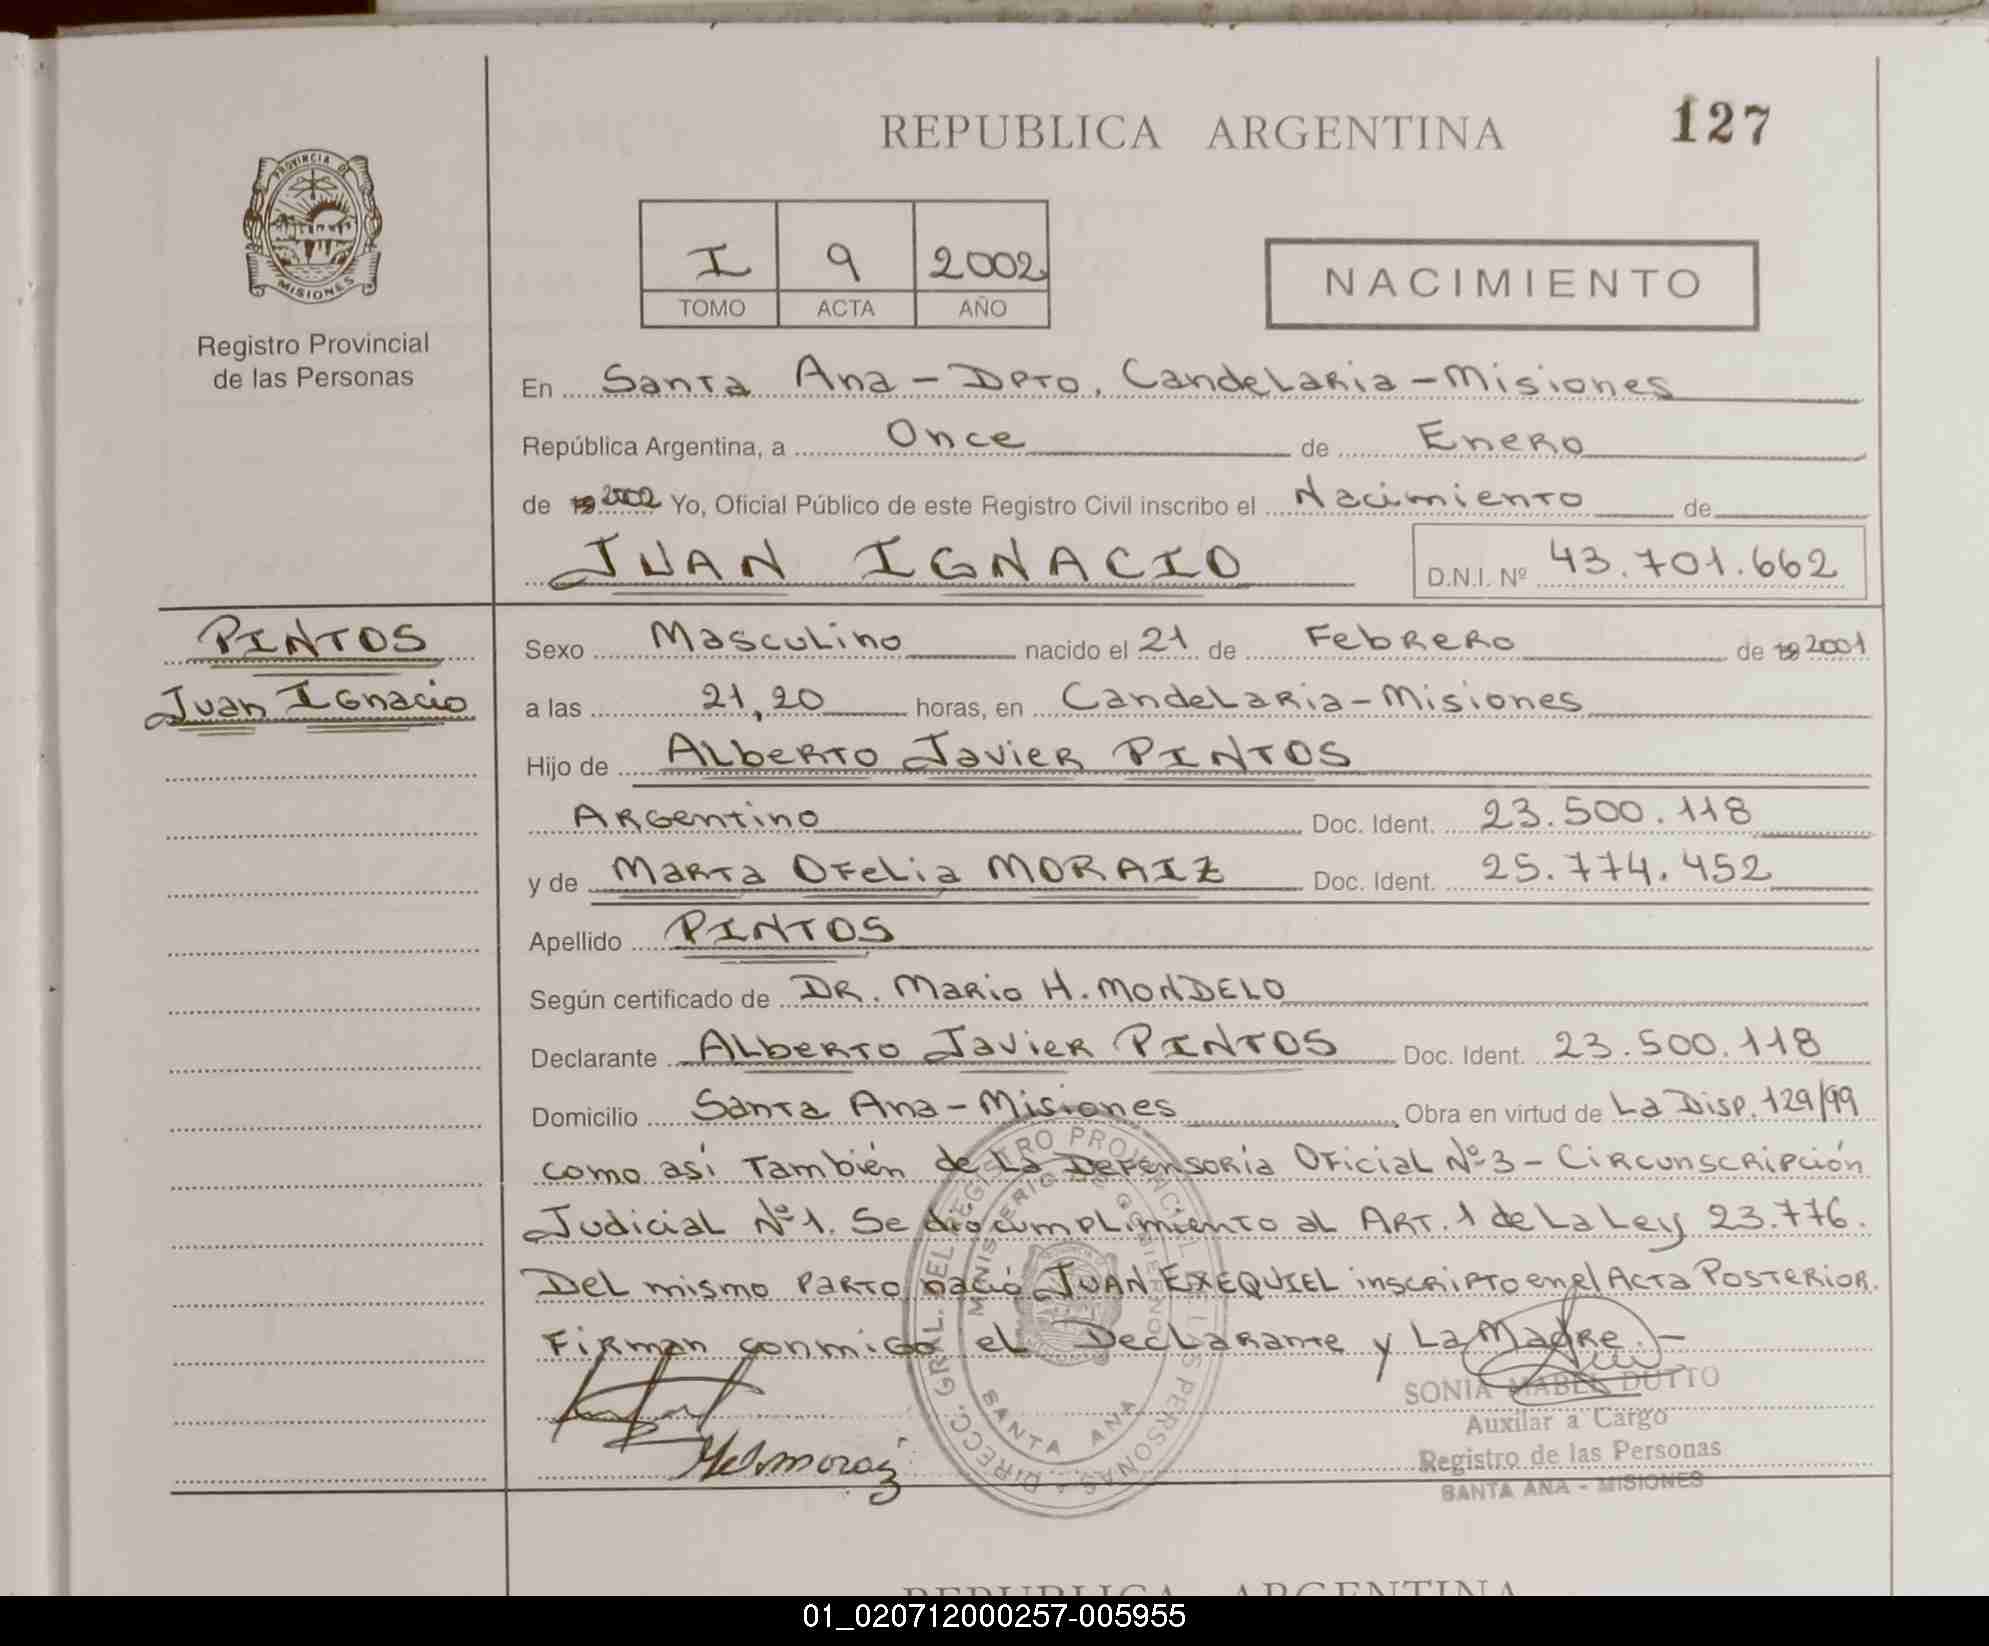 REPUBLICA ARGENTINA
127
PROVINCIA DE
MISIONES
Registro Provincial
de las Personas
I 9 2002
TOMO ACTA AÑO
NACIMIENTO
En Santa Ana - Dpto. Candelaria - Misiones
República Argentina, a Once de Enero
de 19 2002 Yo, Oficial Público de este Registro Civil inscribo el Nacimiento de
JUAN IGNACIO D.N.I. Nº 43.701.662
PINTOS
Juan Ignacio
Sexo Masculino nacido el 21 de Febrero de 19 2001
a las 21,20 horas, en Candelaria - Misiones
Hijo de Alberto Javier PINTOS
Argentino Doc. Ident. 23.500.118
y de Marta Ofelia MORAIZ Doc. Ident. 25.774.452
Apellido PINTOS
Según certificado de DR. Mario H. MONDELO
Declarante Alberto Javier PINTOS Doc. Ident. 23.500.118
Domicilio Santa Ana - Misiones Obra en virtud de La Disp. 129/99
como así También de La Defensoría Oficial Nº 3 - Circunscripción
Judicial Nº 1. Se dio cumplimiento al ART. 1 de La Ley 23.776.
Del mismo parto nació JUAN EXEQUIEL inscripto en el Acta Posterior.
Firman conmigo el Declarante y La Madre. -
DIRECC. GRAL. DEL REGISTRO PROVINCIAL DE LAS PERSONAS
MINISTERIO DE GOBIERNO
SANTA ANA
SONIA MABEL DUTTO
Auxilar a Cargo
Registro de las Personas
SANTA ANA - MISIONES
REPUBLICA ARGENTINA
01_020712000257-005955